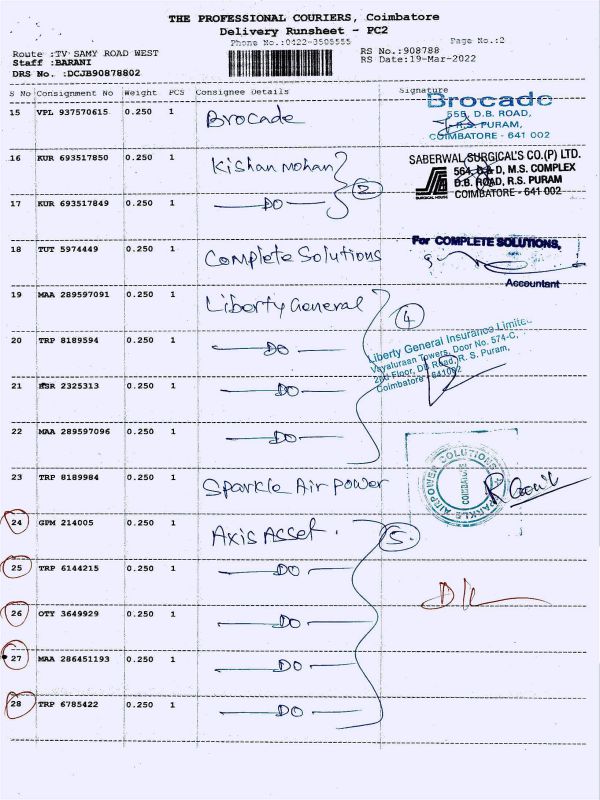 THE PROFESSIONAL COURIERS, Coimbatore
Delivery Runsheet - PC2
Phone No.:0422-3505555 Page No.:2
Route :TV SAMY ROAD WEST RS No.:908788
Staff :BARANI RS Date:19-Mar-2022
DRS No. :DCJB90878802
S No Consignment No Weight PCS Consignee Details Signature
15 VPL 937570615 0.250 1 Brocade
Brocade
555, D.B. ROAD,
R.S. PURAM,
COIMBATORE - 641 002
16 KUR 693517850 0.250 1 Kishan Mohan
17 KUR 693517849 0.250 1 DO 2
SABERWAL SURGICAL'S CO.(P) LTD.
564, D.B. ROAD, M.S. COMPLEX
D.B. ROAD, R.S. PURAM
COIMBATORE - 641 002
SURGICAL HOUSE
18 TUT 5974449 0.250 1 Complete Solutions
For COMPLETE SOLUTIONS,
Accountant
19 MAA 289597091 0.250 1 Liberty General 4
20 TRP 8189594 0.250 1 DO
Liberty General Insurance Limited
Vayaluraan Towers, Door No. 574-C,
2nd Floor, DB Road, R. S. Puram,
Coimbatore - 641002
21 KSR 2325313 0.250 1 DO
22 MAA 289597096 0.250 1 DO
23 TRP 8189984 0.250 1 Sparkle Air power
SPARKLE AIRPOWER SOLUTIONS
COIMBATORE
24 GPM 214005 0.250 1 Axis Asset. 5
25 TRP 6144215 0.250 1 DO
26 OTY 3649929 0.250 1 DO
27 MAA 286451193 0.250 1 DO
28 TRP 6785422 0.250 1 DO